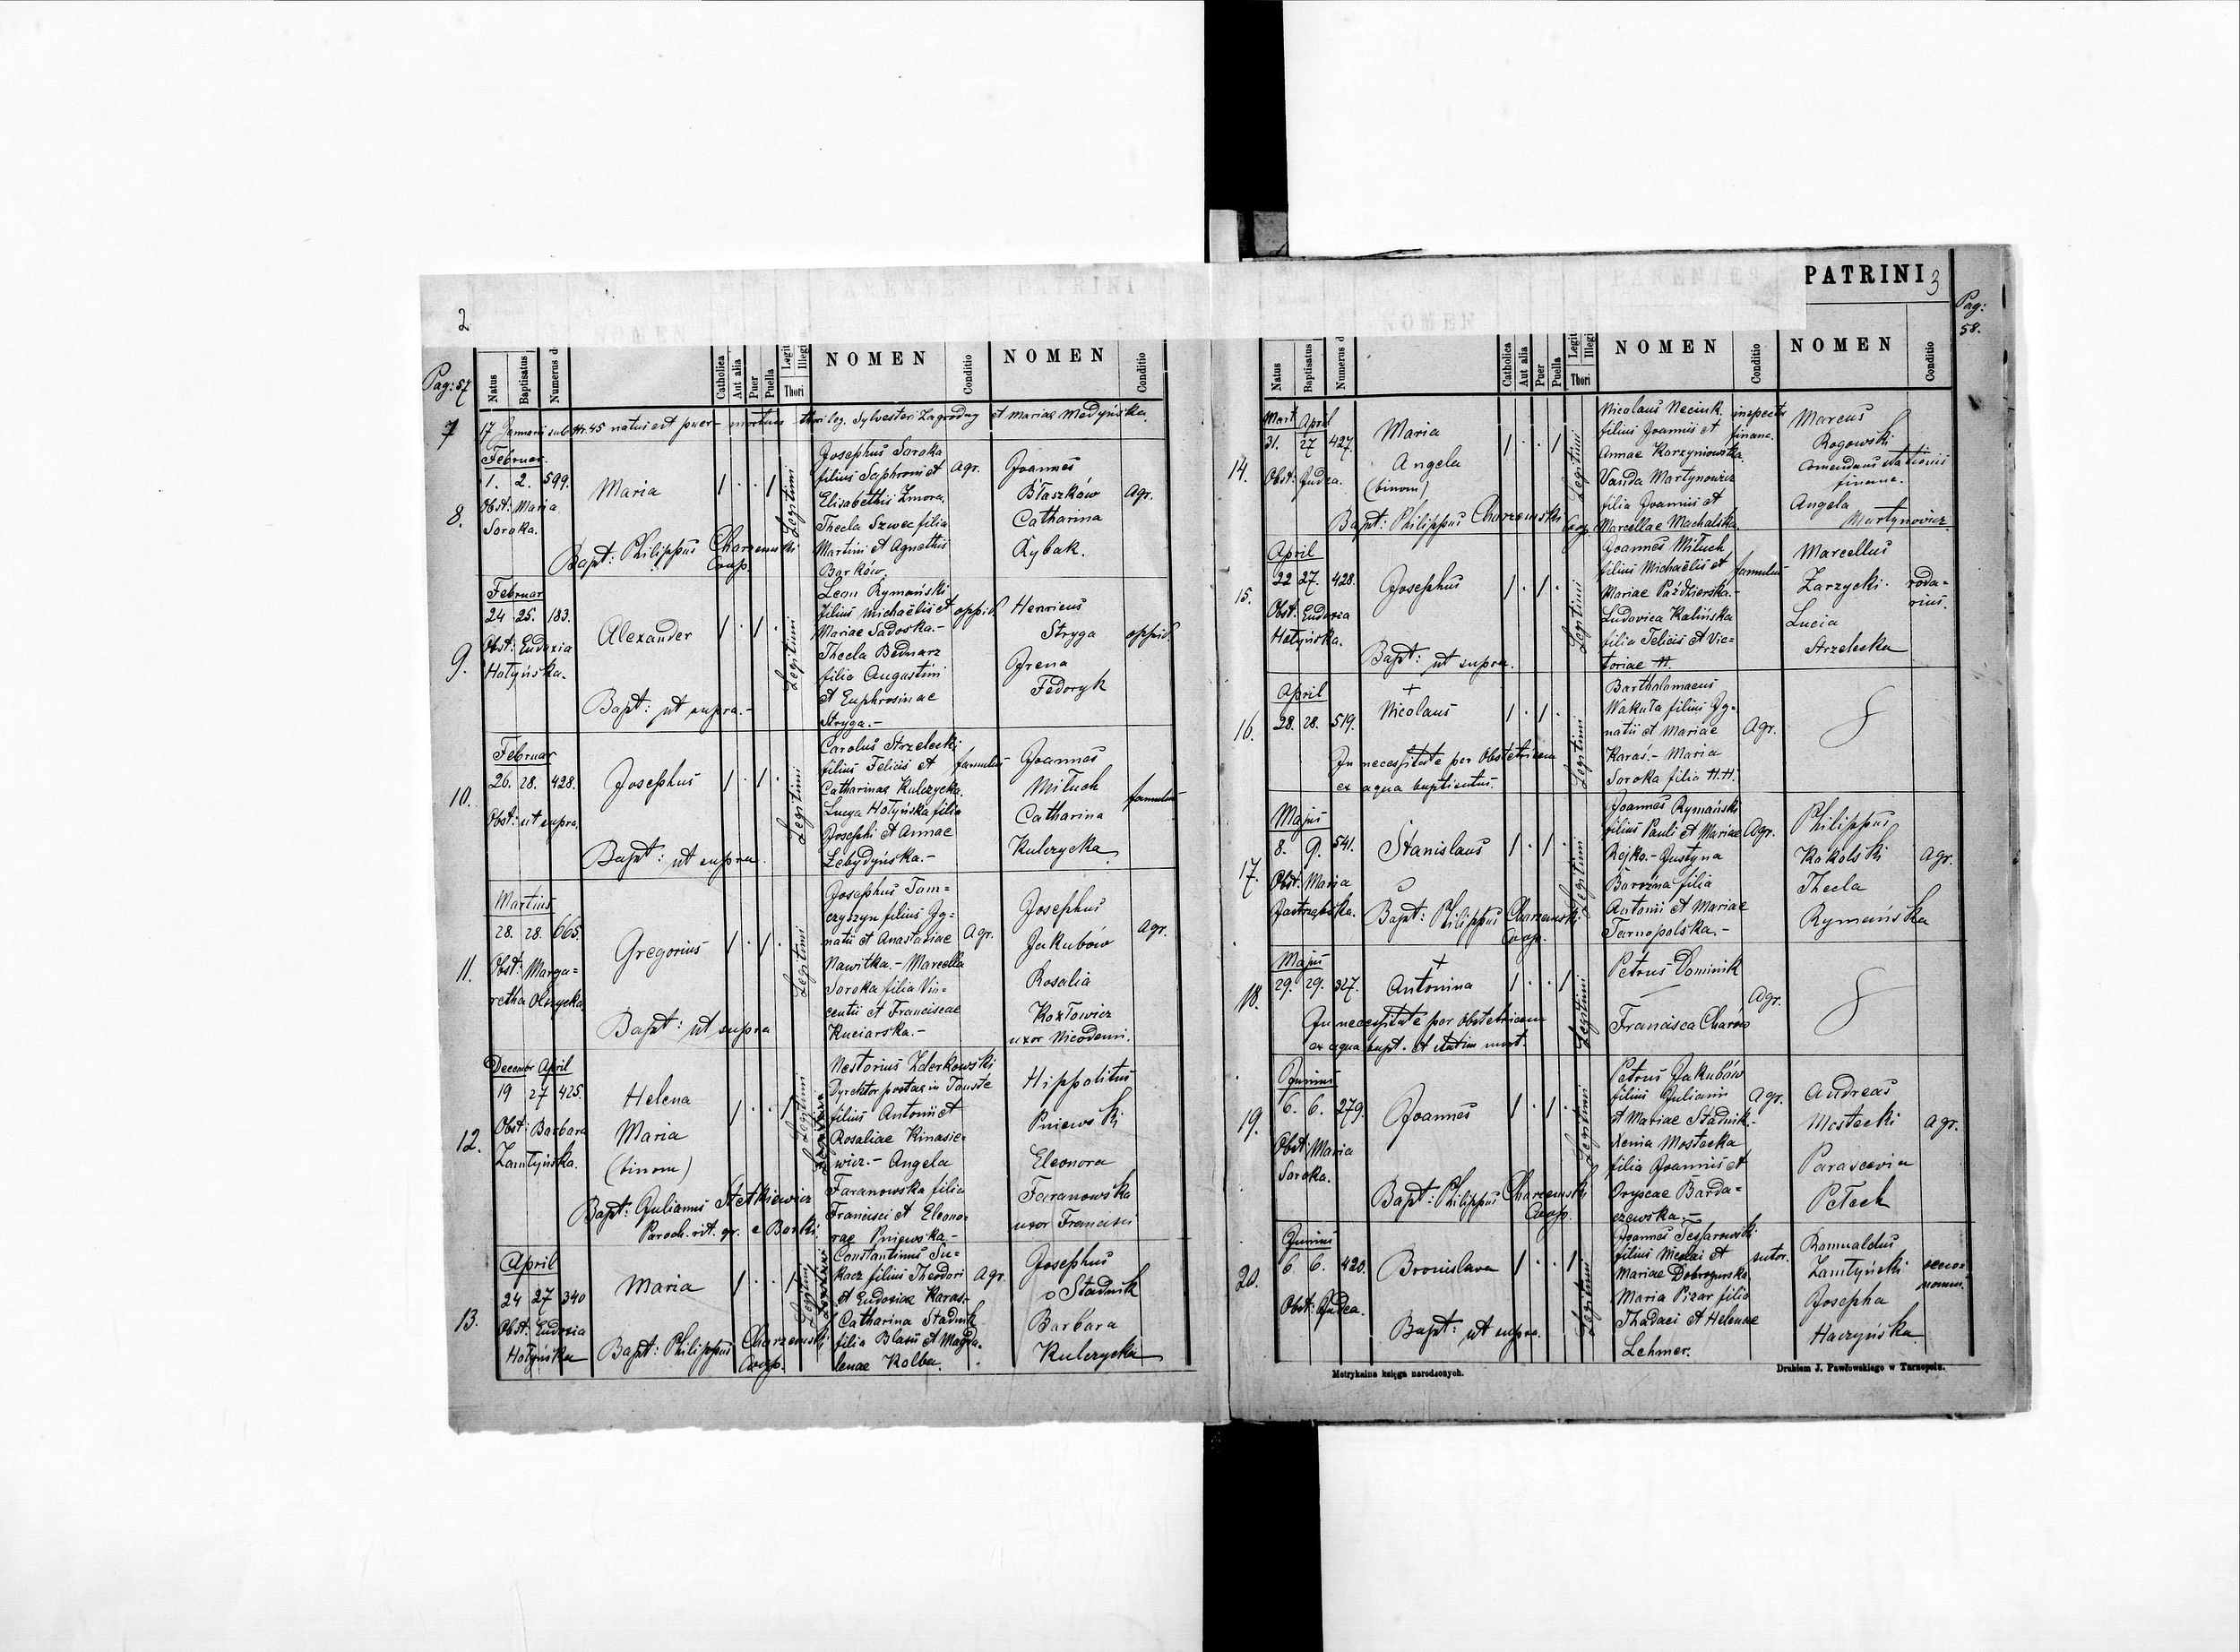 2
Pag: 57
Natus
Baptisatus
Numerus d
Catholica
Aut alia
Puer
Puella
Legit
Illegi
Thori
NOMEN
Conditio
NOMEN
Conditio
7
17 Januarii sub Nr. 45 natus est puer mortuus thori leg. Sylvester Zagrodny et Mariae Medyńska.
8.
Februar.
1. 2. 599.
Obst: Maria
Soroka.
Maria
Bapt: Philippus Charzemski
Coop.
Legitimi
Josephus Soroka
filius Saphroni et
Elisabethis Zmora.
Thecla Szwec filia
Martini et Agnethis
Barków.
Agr.
Joannes
Błaszków
Catharina
Rybak.
Agr.
9.
Februar
24 25. 183.
Obst: Eudoxia
Hołyńska.
Alexander
Bapt: ut supra.-
Legitimi
Leon Rymański
filius Michaëlis et
Mariae Sadoska.-
Thecla Bednarz
filia Augustini
et Euphrosinae
Stryga.-
oppid.
Henricus
Stryga
Irena
Fedoryk
oppid.
10.
Februar
26. 28. 428.
Obst: ut supra.
Josephus
Bapt: ut supra.
Legitimi
Carolus Strzelecki
filius Felicis et
Catharinae Kulczycka.
Lucya Hołyńska filia
Josephi et Annae
Lebydyńska.-
famulus
Joannes
Miłuch
Catharina
Kulczycka
famulus
11.
Martius
28. 28. 665.
Obst: Marga=
retha Olnycka.
Gregorius
Bapt: ut supra
Legitimi
Josephus Tom=
czyszyn filius Ig=
natii et Anastasiae
Nawitka.- Marcella
Soroka filia Vin=
centii et Franciscae
Kuciarska.-
Agr.
Josephus
Jakubów
Rosalia
Kozłowicz
uxor Nicodemi.
Agr.
12.
Decembr April
19 27 425.
Obst: Barbara
Zamłyńska.
Helena
Maria
(binom)
Bapt: Julianus Stetkiewicz
Paroch. rit. gr. e Borki.
Legitimi
Nestorius Zderkowski
Dyrektor postae in Touste
filius Antonii et
Rosaliae Kinasie=
wicz.- Angela
Taranowska filia
Francisci et Eleono=
rae Pniewska.-
Hippolitus
Pniewski
Eleonora
Taranowska
uxor Francisci
13.
April
24 27 340
Obst: Eudoxia
Hołyńska
Maria
Bapt: Philippus Charzemski
Coop.
Constantinus Su=
kacz filius Theodori
et Eudoxiae Karas.-
Catharina Stadnik
filia Blasii et Magda=
lenae Kolba.
Agr.
Josephus
Stadnik
Barbara
Kulczycka
PATRINI
3
Pag:
58.
Natus
Baptisatus
Numerus d
Catholica
Aut alia
Puer
Puella
Legit
Illegi
Thori
NOMEN
Conditio
NOMEN
Conditio
14.
Mart. April
31. 27 427.
Obst: Judea.
Maria
Angela
(binom)
Bapt: Philippus Charzemski Coop.
Legitimi
Nicolaus Neciuk.
filius Joannis et
Annae Korzyniowska.
Vanda Martynowicz
filia Joannis et
Marcellae Machalska.
inspector
financ.
Marcus
Rogowski
Comendans stationis
financ.
Angela
Martynowicz.
15.
April
22 27. 428.
Obst: Eudoxia
Hołyńska.
Josephus
Bapt: ut supra.
Legitimi
Joannes Miłuch
filius Michaëlis et
Mariae Paździerska.-
Ludovica Kalińska
filia Felicis et Vic=
toriae N.
famulus
Marcellus
Zarzycki.
Lucia
Strzelecka
roda=
rius.
16.
April
28. 28. 519.
+
Nicolaus
In necessitate per Obstetricem
ex aqua baptisatus.
Legitimi
Bartholomaeus
Wakuła filius Ig=
natii et Mariae
Karaś.- Maria
Soroka filia N.N.
Agr.
17.
Majus
8. 9. 541.
Obst: Maria
Jastrzębska.
Stanislaus
Bapt: Philippus Charzemski
Coop.
Legitimi
Joannes Rymański
filius Pauli et Mariae
Rejko.- Justyna
Barozna filia
Antonii et Mariae
Tarnopolska.-
Agr.
Philippus
Kokolski
Thecla
Rymańska
Agr.
18.
Majus
29. 29. 327.
+
Antonina
In necessitate per Obstetricem
ex aqua bapt. et statim mort.
Legitimi
Petrus Dominik
Francisca Charów
Agr.
19.
Junius
6. 6. 279.
Obst: Maria
Soroka.
Joannes
Bapt: Philippus Charzemski
Coop.
Legitimi
Petrus Jakubów
filius Juliani
et Mariae Stadnik.-
Xenia Mostecka
filia Joannis et
Oryscae Barda=
czewska.-
Agr.
Andreas
Mostecki
Parascevia
Petech
Agr.
20.
Junius
6. 6. 420.
Obst: Judea.
Bronislava
Bapt: ut supra.
Legitimi
Joannes Tesarowski
filius Nicolai et
Mariae Dobrogurska
Maria Pizar filia
Thadaei et Helenae
Lehmer.
sutor.
Romualdus
Zamłyński
Josepha
Haczyńska
oeco=
nomus.
Metrykalna księga narodzonych.
Drukiem J. Pawłowskiego w Tarnopolu.